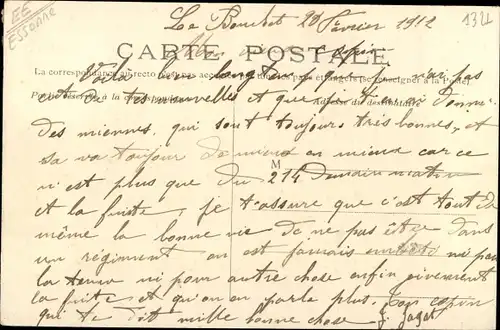 EE
ESSONNE
1321
Le Bouchet 20 Février 1912
CARTE POSTALE
Mon copain
La correspondance au recto n'est pas acceptée par tous les pays étrangers (se renseigner à la Poste)
Voila longtemps que je n'ai pas
Partie réservée à la correspondance
Adresse du destinataire
eut de tes nouvelles et que je t'ai donné
des miennes. qui sont toujours très bonnes, et
sa va toujour de mieux en mieux car ce
M
n'est plus que du 214 Demain matin
et la fuite, je t'assure que c'est tout de
même la bonne vie de ne pas être dans
un régiment on est jamais embêté ni par
la tenue ni pour autre chose enfin vivement
la fuite et qu'on en parle plus. Ton copain
qui te dit mille bonne chose